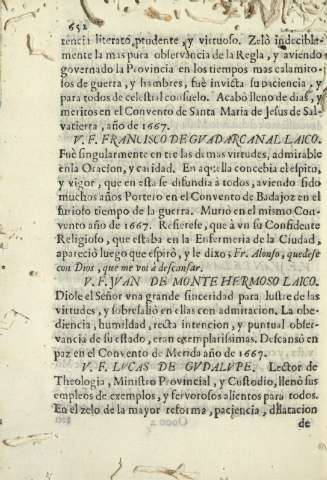 652
tencia literato, prudente, y virtuoso. Zelò indecible-
mente la mas pura observancia de la Regla, y aviendo
governado la Provincia en los tiempos mas calamito-
sos de guerra, y hambres, fuè invicta su paciencia, y
para todos de celestial consuelo. Acabò lleno de dias, y
meritos en el Convento de Santa Maria de Jesus de Sal-
vatierra, año de 1667.
V. F. FRANCISCO DE GVADARCANAL LAICO.
Fuè singularmente entre las demas virtudes, admirable
en la Oracion, y caridad. En aquella concebia el espiritu,
y vigor, que en esta se difundia à todos, aviendo sido
muchos años Portero en el Convento de Badajoz en el
furioso tiempo de la guerra. Murió en el mismo Con-
vento año de 1667. Refierese, que à vn su Confidente
Religioso, que estaba en la Enfermeria de la Ciudad,
apareciò luego que espirò, y le dixo; Fr. Alonso, quedese
con Dios, que me voi à descansar.
V. F. JVAN DE MONTE HERMOSO LAICO.
Diole el Señor vna grande sinceridad para lustre de las
virtudes, y sobresaliò en ellas con admiracion. La obe-
diencia, humildad, recta intencion, y puntual obser-
vancia de su estado, eran exemplarissimas. Descansò en
paz en el Convento de Merida año de 1667.
V. F. LUCAS DE GVDALVPE. Lector de
Theologia, Ministro Provincial, y Custodio, llenò sus
empleos de exemplos, y fervorosos alientos para todos.
En el zelo de la mayor reforma, paciencia, dilatacion
Oooo 2
de